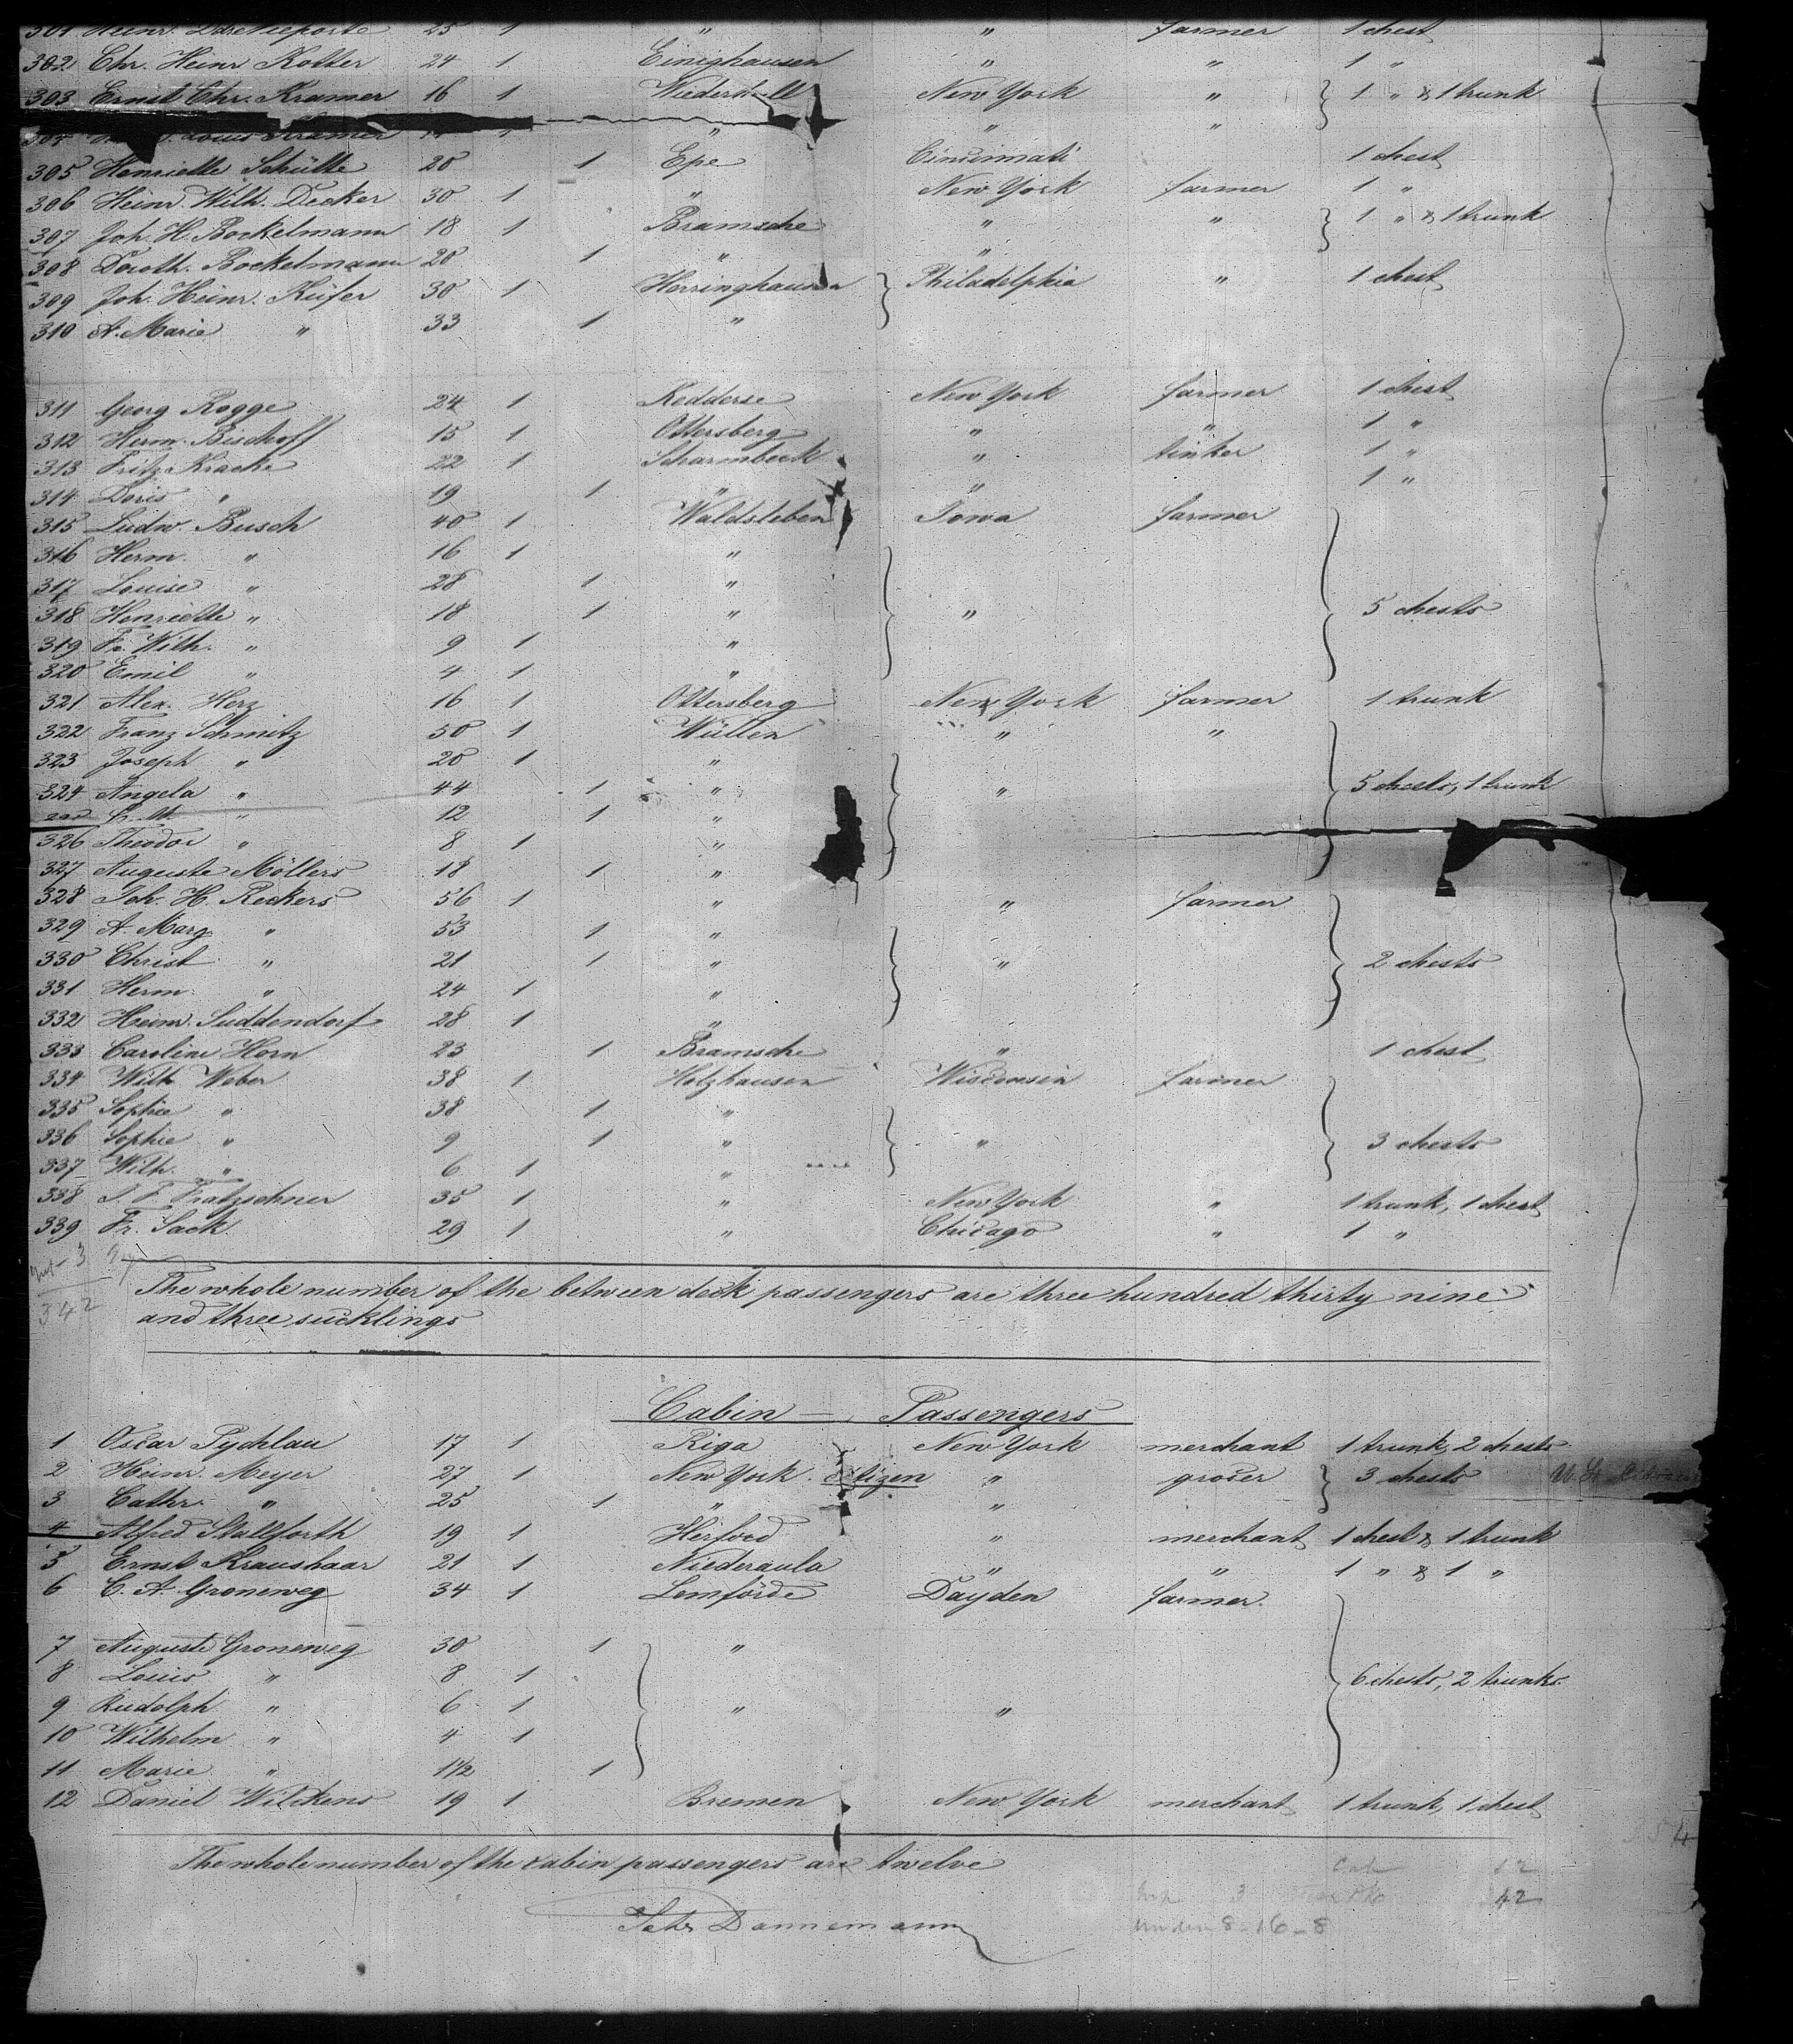 301 Heinr. 25 1 " " farmer 1 chest
302 Chr. Heinr Kotter 24 1 Einighausen " " 1 "
303 Ernst Chr. Kramer 16 1 New York " 1 " & 1 trunk
Louis Kramer 1 " " "
305 Henriette Schütte 20 1 Epe Cincinnati 1 chest
306 Heinr. Wilh. Decker 30 1 " New York farmer 1 "
307 Joh. H. Bockelmann 18 1 Bramsche " " 1 " & 1 trunk
308 Doroth. Bockelmann 20 1 " "
309 Joh. Heinr. Küfer 30 1 Herringhausen Philadelphia " 1 chest
310 A. Marie " 33 1 "
311 Georg Rogge 24 1 Redderse New York farmer 1 chest
312 Herm. Bischoff 15 1 Ottersberg " " 1 "
313 Fritz Kracke 22 1 Scharmbeck " tinker 1 "
314 Doris " 19 1 " " 1 "
315 Ludw. Busch 40 1 Waldsleben Iowa farmer
316 Herm. " 16 1 "
317 Louise " 28 1 "
318 Henriette " 18 1 " " 5 chests
319 Fr. Wilh. " 9 1 "
320 Emil " 4 1 "
321 Alex. Herz 16 1 Ottersberg New York farmer 1 trunk
322 Franz Schmitz 50 1 Wüllen " "
323 Joseph " 20 1 "
324 Angela " 44 1 " " 5 chests, 1 trunk
" 12 1 "
326 Theodor " 8 1 "
327 Auguste Möllers 18 1 "
328 Joh. H. Reckers 56 1 " " farmer
329 A. Marg " 53 1 "
330 Christ " 21 1 " " 2 chests
331 Herm. " 24 1 "
332 Heinr. Suddendorf 28 1 "
333 Caroline Horn 23 1 Bramsche " 1 chest
334 Wilh Weber 38 1 Holzhausen Wisconsin farmer
335 Sophie " 38 1 "
336 Sophie " 9 1 " " 3 chests
337 Wilh. " 6 1 "
338 Fratzschner 35 1 " New York " 1 trunk, 1 chest
339 Fr. Sack 29 1 " Chicago " 1 "
3
342
The whole number of the between deck passengers are three hundred thirty nine
and three sucklings
Cabin — Passengers
1 Oscar Pychlau 17 1 Riga New York merchant 1 trunk, 2 chests
2 Heinr. Meyer 27 1 New York. citizen " grocer 3 chests
3 Cathr. " 25 1 " "
4 Alfred Stallforth 19 1 Herford " merchant 1 chest & 1 trunk
5 Ernst Kraushaar 21 1 Niederaula " " 1 " & 1 "
6 C. A. Groneweg 34 1 Lemförde Dayden farmer.
7 Auguste Groneweg 30 1 "
8 Louis " 8 1 6 chests, 2 trunks.
9 Rudolph " 6 1 " "
10 Wilhelm " 4 1
11 Marie " 1 1/2 1
12 Daniel Wilckens 19 1 Bremen New York merchant 1 trunk, 1 chest
The whole number of the cabin passengers are twelve
Dannemann
12
3 42
under 8 - 16 - 8